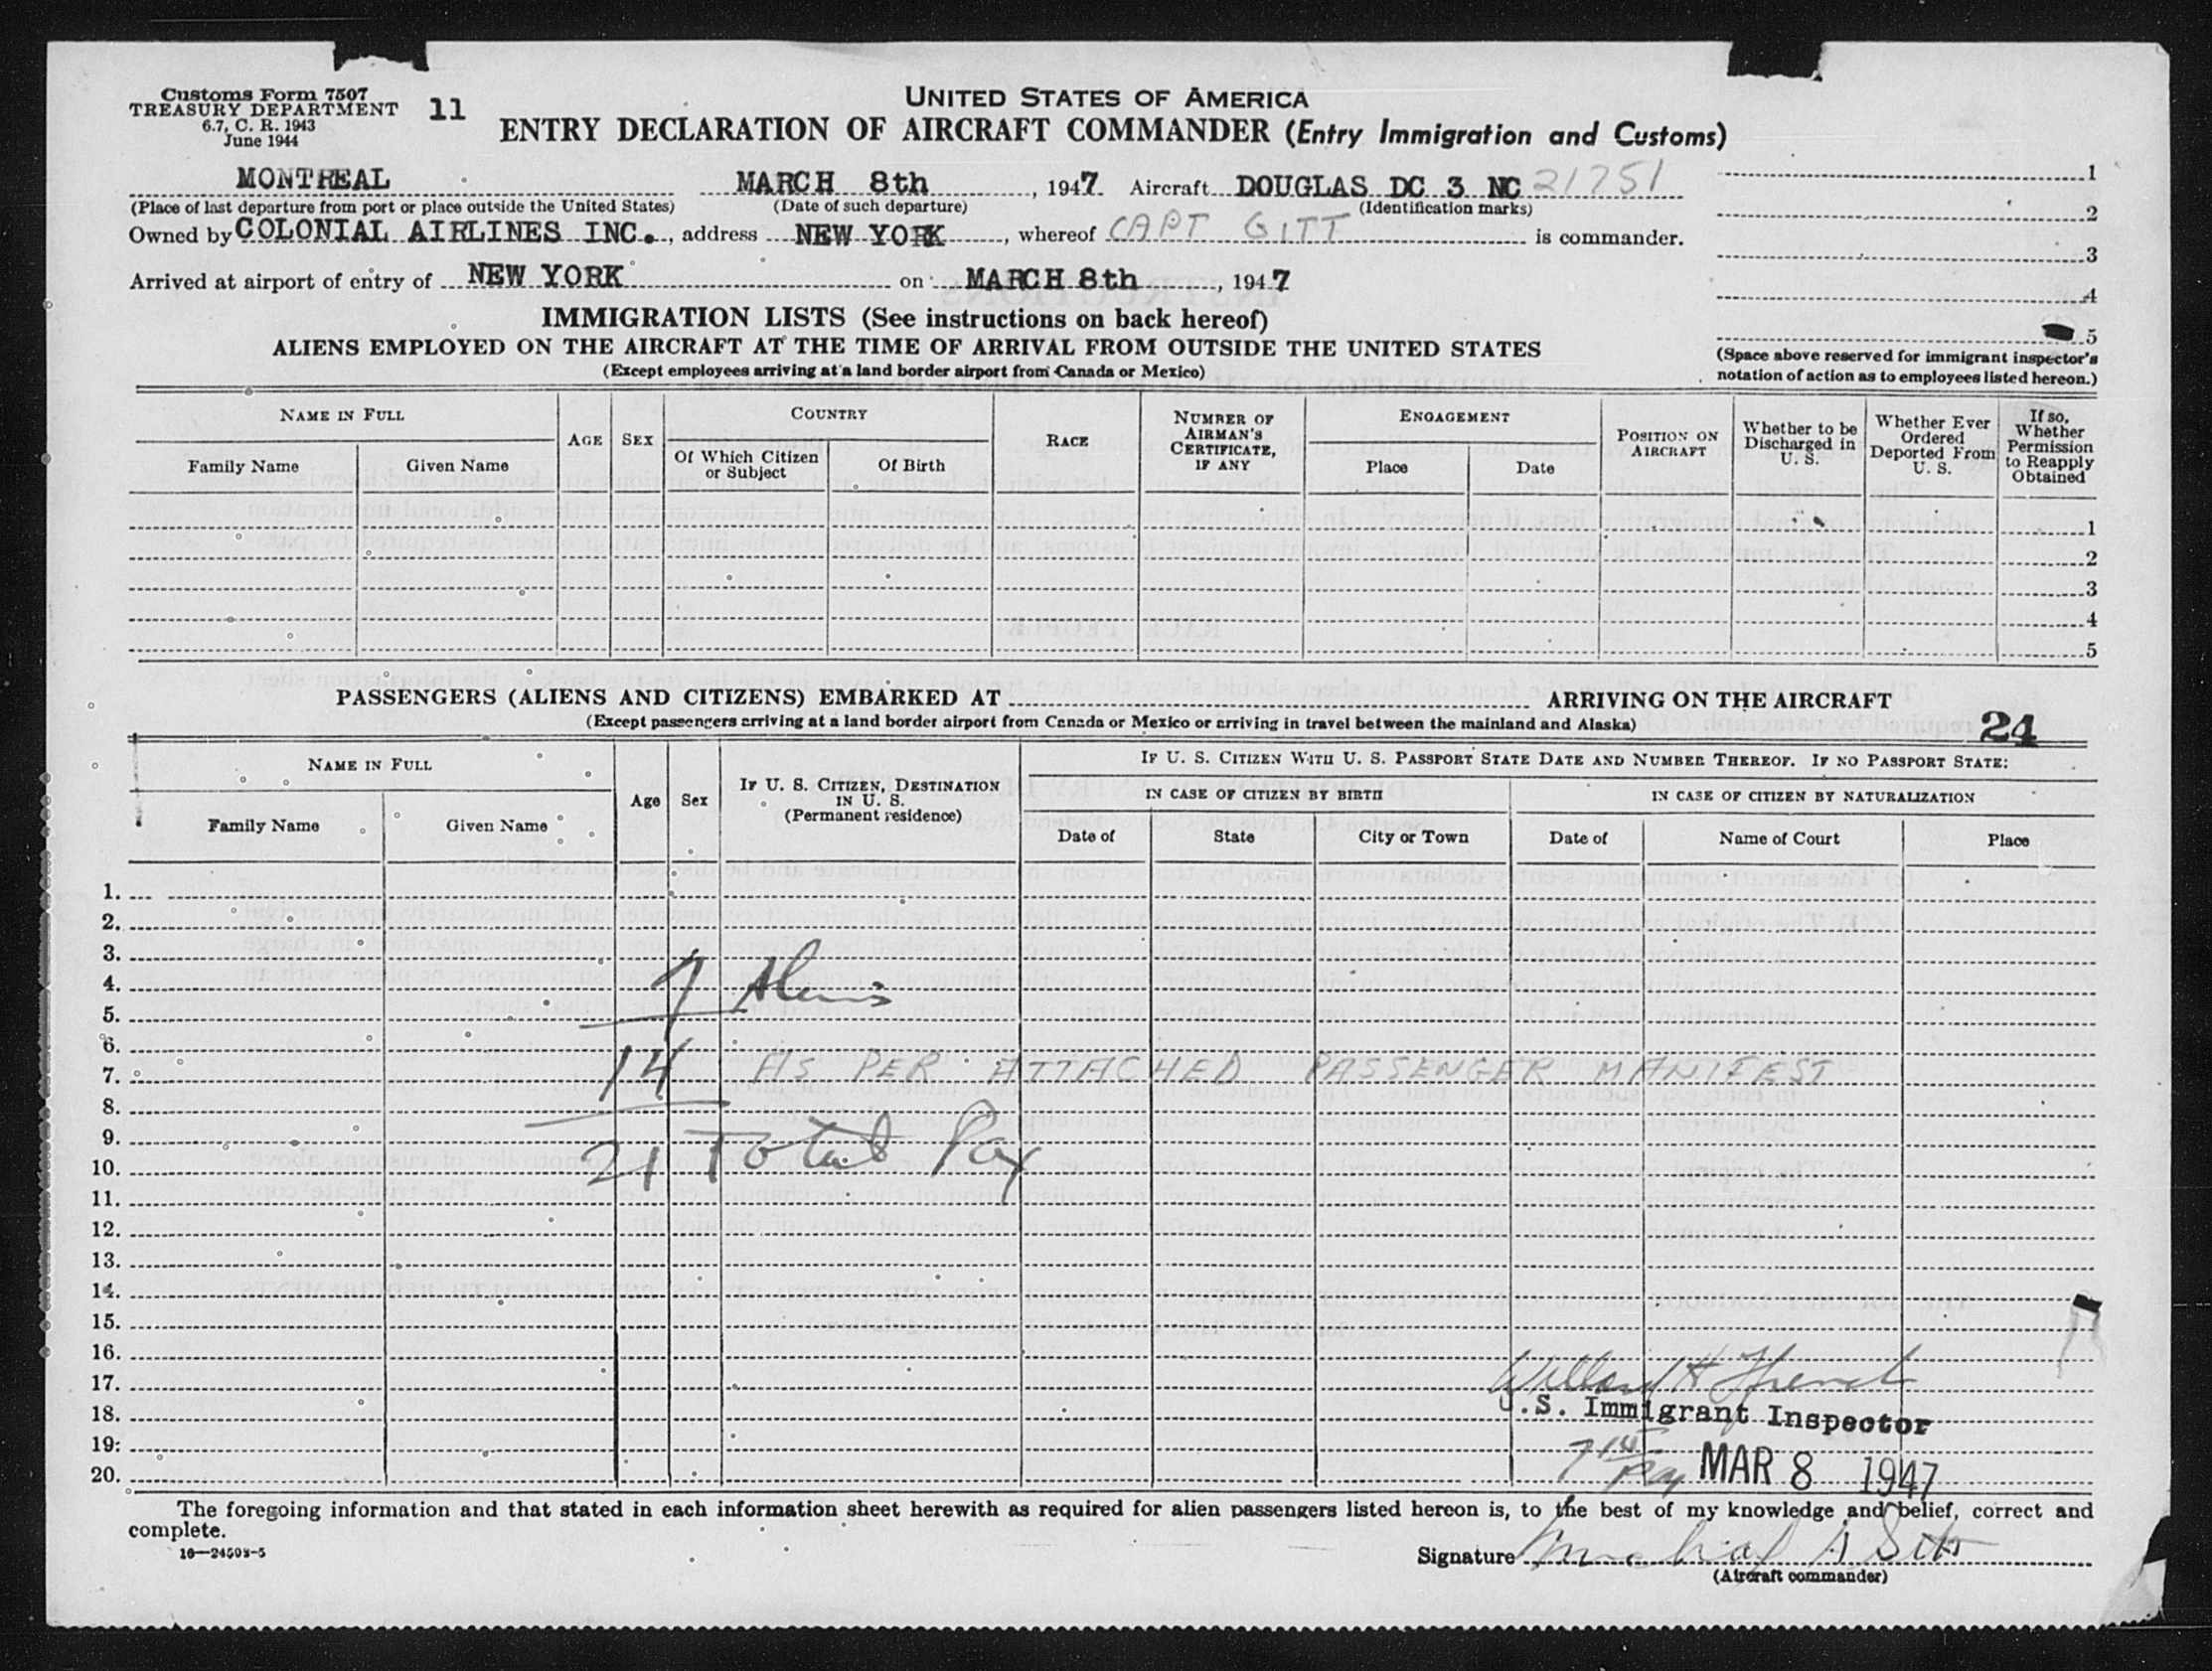 Customs Form 7507
TREASURY DEPARTMENT
6.7, C. R. 1943
June 1944
11
UNITED STATES OF AMERICA
ENTRY DECLARATION OF AIRCRAFT COMMANDER (Entry Immigration and Customs)
MONTREAL MARCH 8th, 1947 Aircraft DOUGLAS DC 3 NC 21751
(Place of last departure from port or place outside the United States) (Date of such departure) (Identification marks)
Owned by COLONIAL AIRLINES INC., address NEW YORK, whereof CAPT GITT is commander.
Arrived at airport of entry of NEW YORK on MARCH 8th, 1947
1
2
3
4
5
(Space above reserved for immigrant inspector's
notation of action as to employees listed hereon.)
IMMIGRATION LISTS (See instructions on back hereof)
ALIENS EMPLOYED ON THE AIRCRAFT AT THE TIME OF ARRIVAL FROM OUTSIDE THE UNITED STATES
(Except employees arriving at a land border airport from Canada or Mexico)
NAME IN FULL
Family Name
Given Name
AGE
SEX
COUNTRY
Of Which Citizen or Subject
Of Birth
RACE
NUMBER OF AIRMAN'S CERTIFICATE, IF ANY
ENGAGEMENT
Place
Date
POSITION ON AIRCRAFT
Whether to be Discharged in U. S.
Whether Ever Ordered Deported From U. S.
If so, Whether Permission to Reapply Obtained
1
2
3
4
5
PASSENGERS (ALIENS AND CITIZENS) EMBARKED AT ARRIVING ON THE AIRCRAFT
(Except passengers arriving at a land border airport from Canada or Mexico or arriving in travel between the mainland and Alaska)
24
NAME IN FULL
Family Name
Given Name
Age
Sex
IF U. S. CITIZEN, DESTINATION IN U. S.
(Permanent residence)
IF U. S. CITIZEN WITH U. S. PASSPORT STATE DATE AND NUMBER THEREOF. IF NO PASSPORT STATE:
IN CASE OF CITIZEN BY BIRTH
Date of
State
City or Town
IN CASE OF CITIZEN BY NATURALIZATION
Date of
Name of Court
Place
1.
2.
3.
4. 7 Aliens
5.
6.
7. 14 AS PER ATTACHED PASSENGER MANIFEST
8.
9.
10. 21 Total Pax
11.
12.
13.
14.
15.
16.
17. Willard H French
18. U.S. Immigrant Inspector
19.
20. MAR 8 1947
The foregoing information and that stated in each information sheet herewith as required for alien passengers listed hereon is, to the best of my knowledge and belief, correct and
complete.
16—24508-5
Signature
(Aircraft commander)